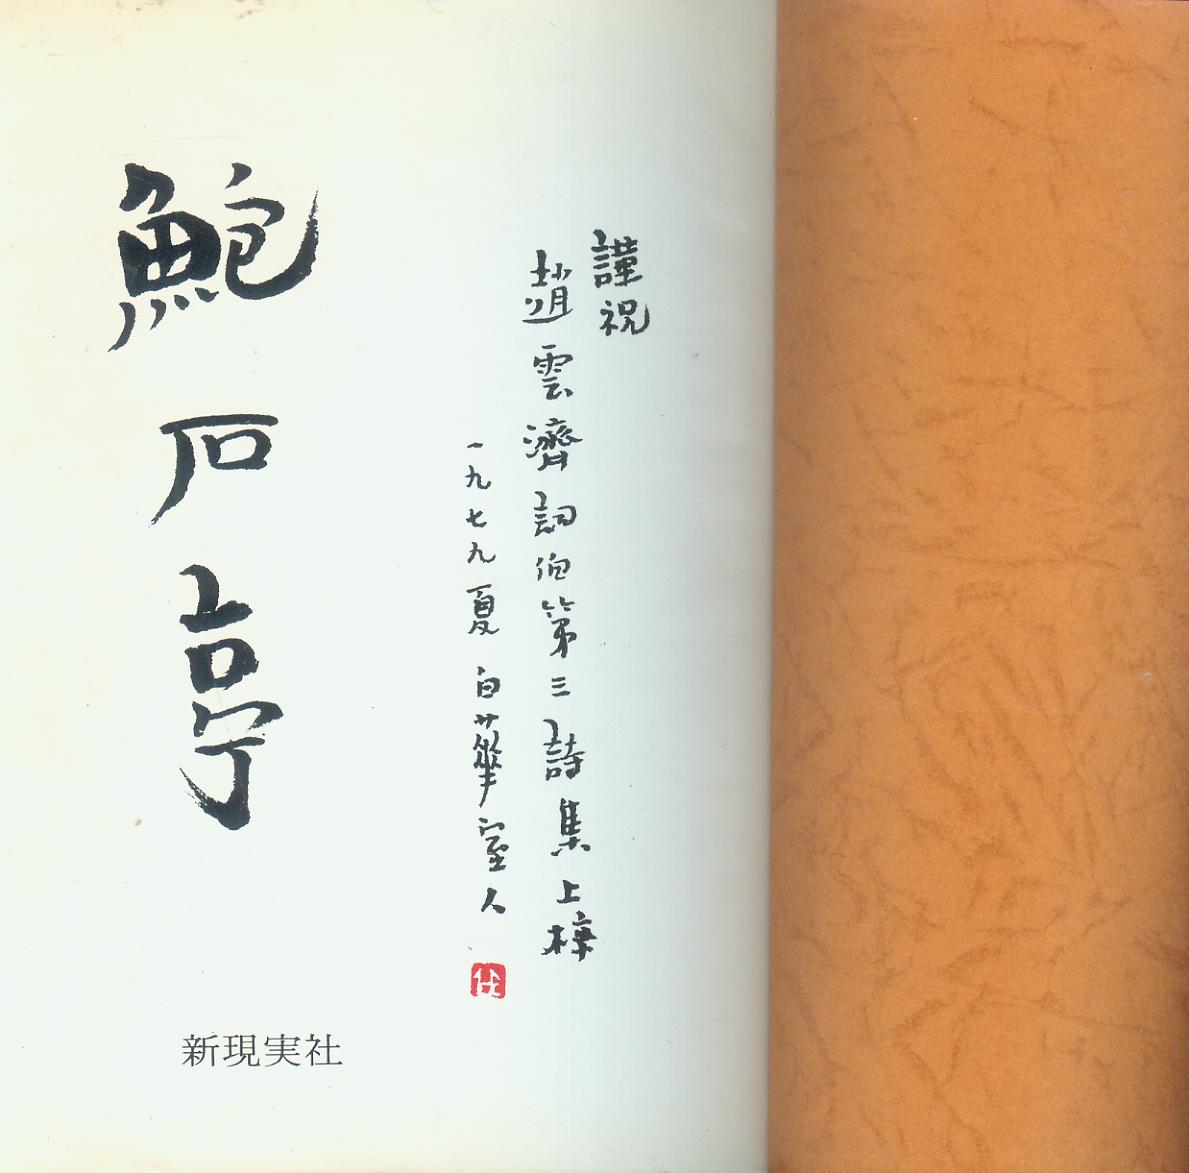 謹祝
趙雲濟詞伯第三詩集上梓
一九七九夏 白華室人
鮑石亭
新現実社